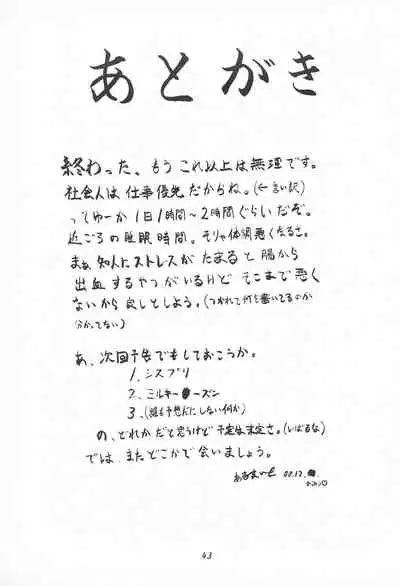 あとがき
終わった、もうこれ以上は無理です。
社会人は仕事優先だからね。(←言い訳)
ってゆーか1日1時間〜2時間ぐらいだぞ。
近ごろの睡眠時間。そりゃ体調悪くなるさ。
まぁ知人にストレスがたまると腸から
出血するやつがいるけど そこまで悪く
ないから良しとしよう。(つかれて何を書いてるのか
分かってない)
あ、次回予告でもしておこうか。
1、シスプリ
2、ミルキー●ーズン
3、(誰も予想だにしない何か)
の、どれかだと思うけど予定は未定さ。(いばるな)
では、またどこかで会いましょう。
00.12.
43